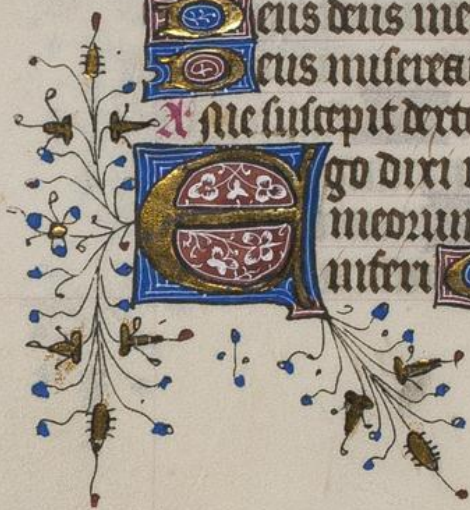 Deus deus me
Deus miserea
A Me suscepit dext
Ego dixi
meorum
inferi